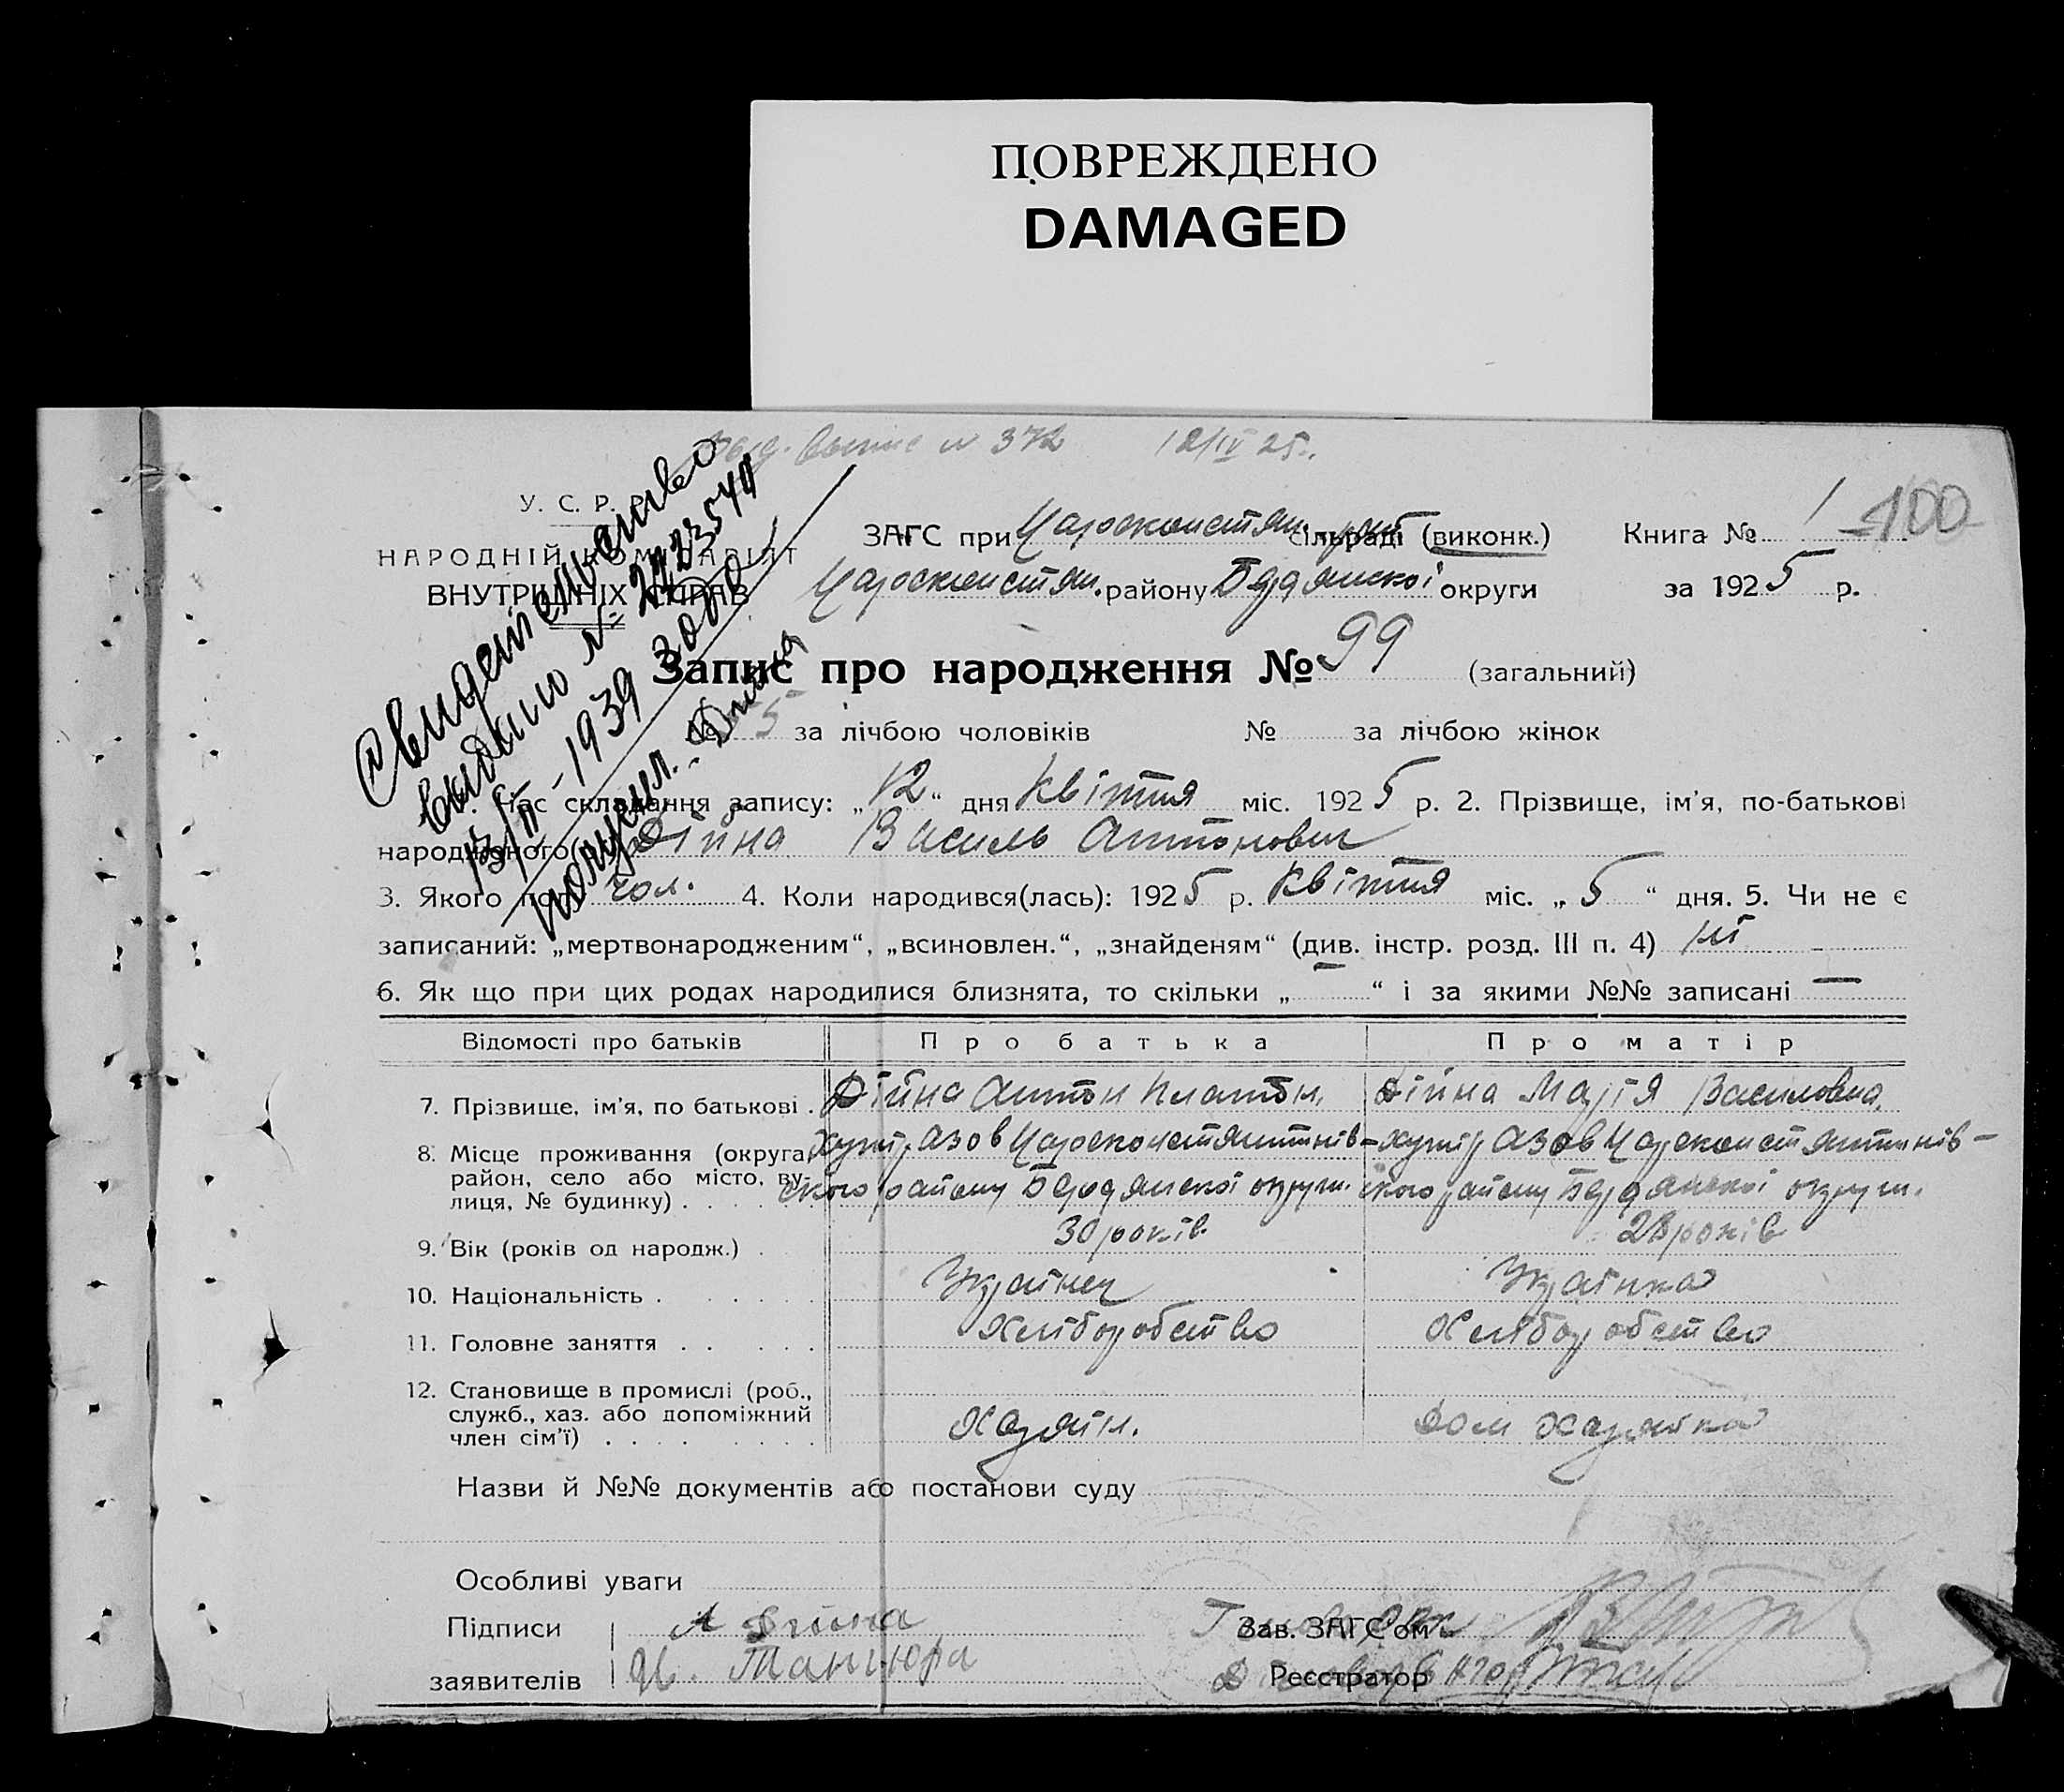 ПОВРЕЖДЕНО
DAMAGED
выпис № 372 12/IV 25.
У. С. Р. Р.
НАРОДНІЙ КОМІСАРІЯТ
ВНУТРІШНІХ СПРАВ
Свидетельство
выдано № 2423544
13/II – 1939 года
получил. Дийна
ЗАГС при Царсконстян. сільраді (виконк.) Книга № 1 100
Царсконстян. району Бердянської округи за 1925 р.
Запис про народження № 99 (загальний)
№ 55 за лічбою чоловіків № за лічбою жінок
1. Час складання запису: „12“ дня Квітня міс. 1925 р. 2. Прізвище, ім'я, по-батькові
народженого Дійна Василь Антонович
3. Якого полу чол. 4. Коли народився(лась): 1925 р. Квітня міс. „5“ дня. 5. Чи не є
записаний: „мертвонародженим“, „всиновлен.“, „знайденям“ (див. інстр. розд. III п. 4) ні
6. Як що при цих родах народилися близнята, то скільки „—“ і за якими №№ записані —
Відомості про батьків Про батька Про матір
7. Прізвище, ім'я, по батькові . Дійна Антон Платон. Дійна Марія Василовна.
8. Місце проживання (округа, район, село або місто, вулиця, № будинку) . . . . . . хутір Азов Царсконстянтинів- хутір Азов Царсконстянтинів-
ского району Бердянскої округи. ского району Бердянскої округи.
9. Вік (років од народж.) . 30 років. 28 років
10. Національність . . . . . . Українец Українка
11. Головне заняття . . . . . Хліборобство Хліборобство
12. Становище в промислі (роб.,
служб., хаз. або допоміжний
член сім'ї) . . . . . . . . Хазяїн. Дом хазяйка
Назви й №№ документів або постанови суду
Особливі уваги
Підписи А Дійна Зав. ЗАГС'ом
заявителів Танцюра Реєстратор